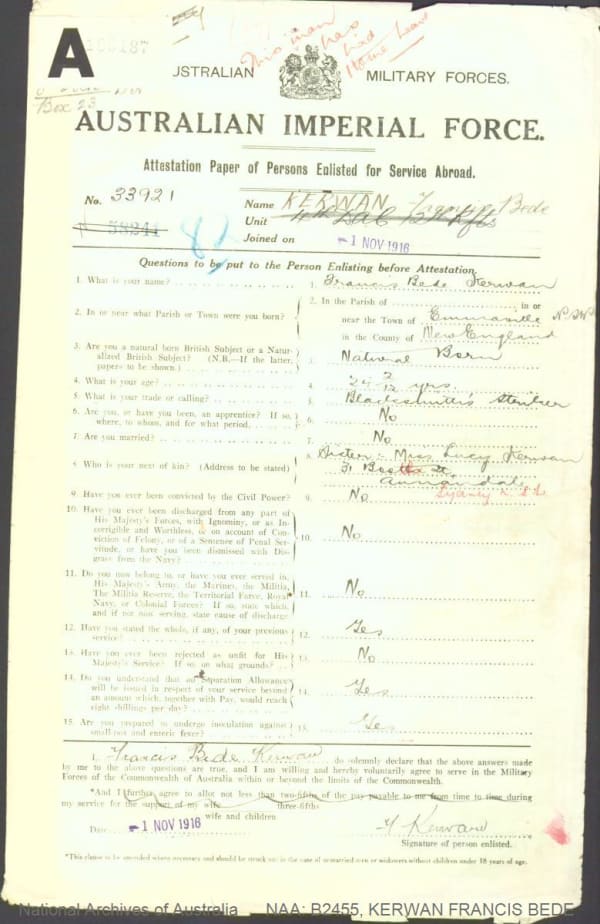 A
This man
has
had
Home Leave
Box 23
USTRALIAN MILITARY FORCES.
AUSTRALIAN IMPERIAL FORCE.
Attestation Paper of Persons Enlisted for Service Abroad.
No. 33921
Name KERWAN Francis Bede
Unit
Joined on -1 NOV 1916
Questions to be put to the Person Enlisting before Attestation.
1. What is your name? 1. Francis Bede Kerwan
2. In or near what Parish or Town were you born? 2. In the Parish of in or
near the Town of Emmaville N.S.W
in the County of New England
3. Are you a natural born British Subject or a Natur-
alized British Subject? (N.B.—If the latter,
papers to be shown.) 3. Natural Born
4. What is your age? 4. 24 2/12 yrs.
5. What is your trade or calling? 5. Blacksmith's Striker
6. Are you, or have you been, an apprentice? If so,
where, to whom, and for what period. 6. No
7. Are you married? 7. No
8. Who is your next of kin? (Address to be stated) 8. Sister: Miss Lucy Kerwan
31 St
Annandale
Sydney
9. Have you ever been convicted by the Civil Power? 9. No
10. Have you ever been discharged from any part of
His Majesty's Forces, with Ignominy, or as In-
corrigible and Worthless, or on account of Con-
viction of Felony, or of a Sentence of Penal Ser-
vitude, or have you been dismissed with Dis-
grace from the Navy? 10. No
11. Do you now belong to, or have you ever served in,
His Majesty's Army, the Marines, the Militia,
The Militia Reserve, the Territorial Force, Royal
Navy, or Colonial Forces? If so, state which,
and if not now serving, state cause of discharge 11. No
12. Have you stated the whole, if any, of your previous
service? 12. Yes
13. Have you ever been rejected as unfit for His
Majesty's Service? If so, on what grounds? 13. No
14. Do you understand that no Separation Allowance
will be issued in respect of your service beyond
an amount which, together with Pay, would reach
eight shillings per day? 14. Yes
15. Are you prepared to undergo inoculation against
small pox and enteric fever? 15. Yes
I, Francis Bede Kerwan do solemnly declare that the above answers made
by me to the above questions are true, and I am willing and hereby voluntarily agree to serve in the Military
Forces of the Commonwealth of Australia within or beyond the limits of the Commonwealth.
*And I further agree to allot not less than two-fifths of the pay payable to me from time to time during
three-fifths
my service for the support of my wife
wife and children
Date -1 NOV 1916 F Kerwan
Signature of person enlisted.
*This clause to be amended where necessary and should be struck out in the case of unmarried men or widowers without children under 18 years of age.
National Archives of Australia NAA: B2455, KERWAN FRANCIS BEDE